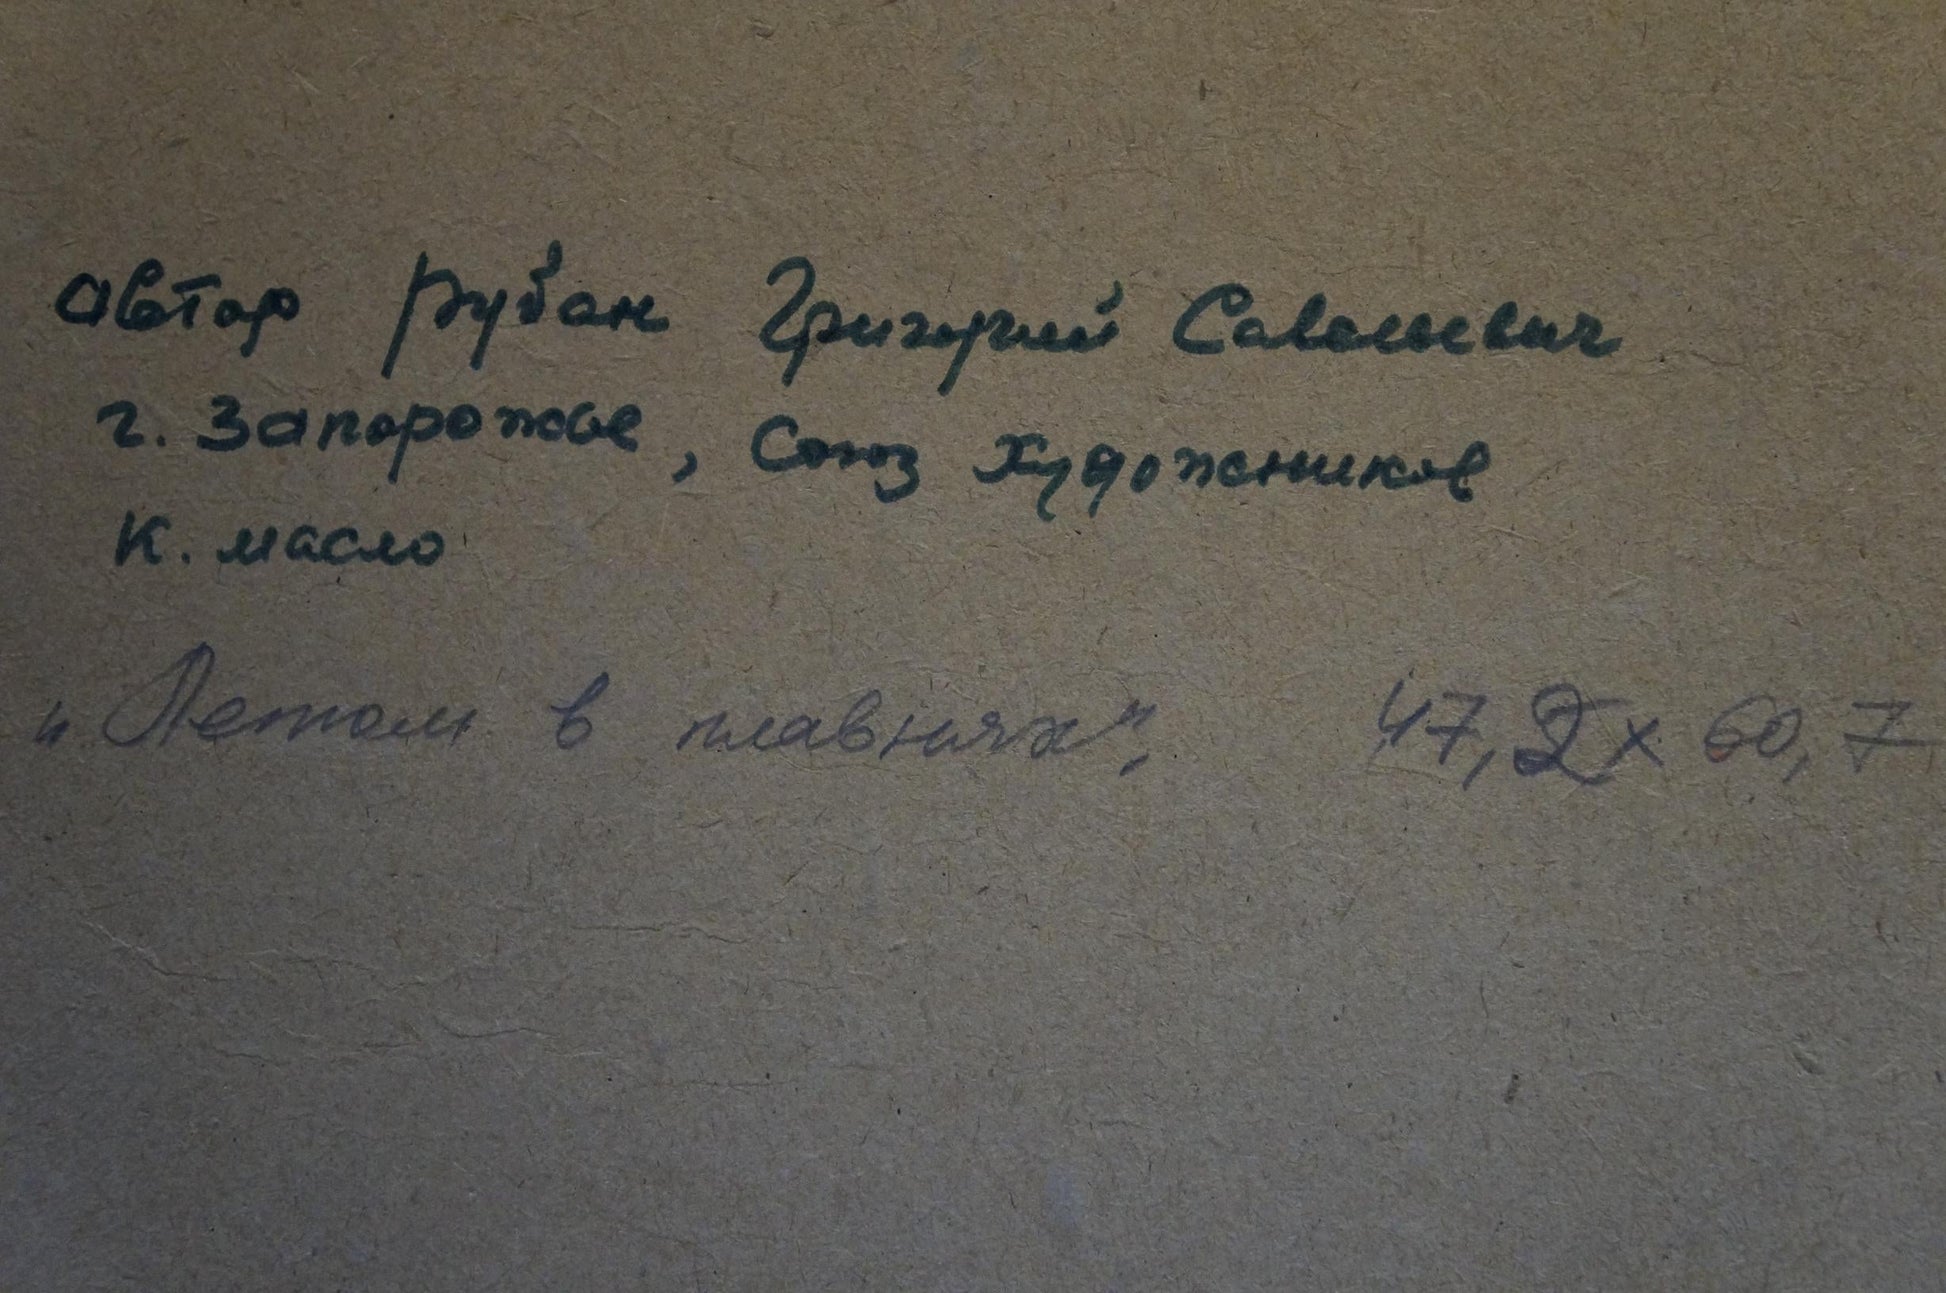 автор Рубан Григорий Савельевич
г. Запорожье, Союз художников
К. масло
„Летом в плавнях", 47,2 х 60,7